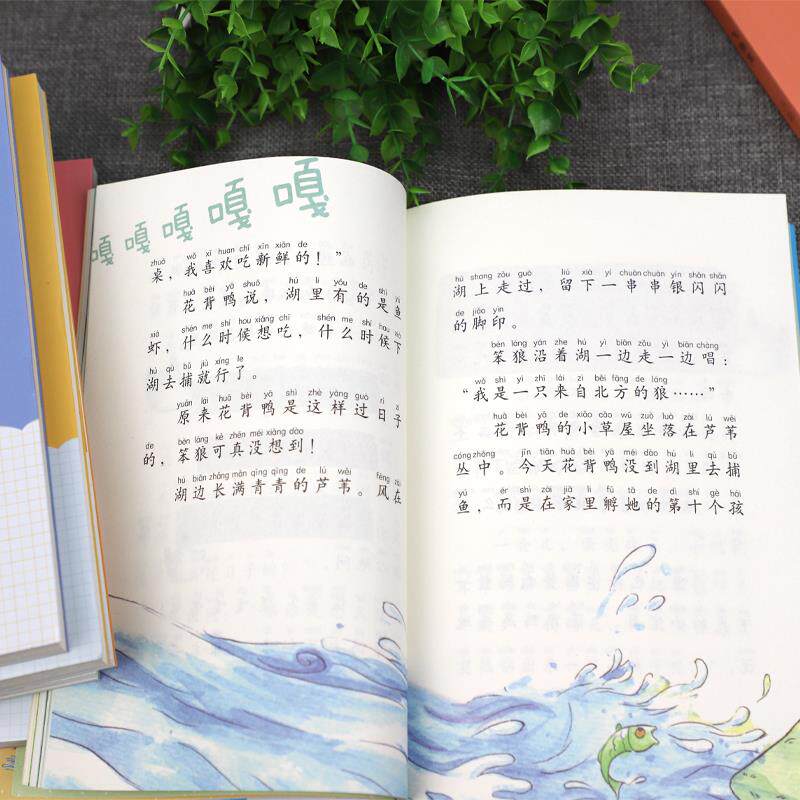 嘎嘎嘎嘎嘎
zhuō wǒ xǐ huan chī xīn xiān de
桌，我喜欢吃新鲜的！”
huā bèi yā shuō hú li yǒu de shì yú
花背鸭说，湖里有的是鱼
xiā shén me shí hou xiǎng chī shén me shí hou xià
虾，什么时候想吃，什么时候下
hú qù bǔ jiù xíng le
湖去捕就行了。
yuán lái huā bèi yā shì zhè yàng guò rì zi
原来花背鸭是这样过日子
de bèn láng kě zhēn méi xiǎng dào
的，笨狼可真没想到！
hú biān zhǎng mǎn qīng qīng de lú wěi fēng zài
湖边长满青青的芦苇。风在
hú shang zǒu guò liú xià yí chuàn chuàn yín shǎn shǎn
湖上走过，留下一串串银闪闪
de jiǎo yìn
的脚印。
bèn láng yán zhe hú yì biān zǒu yì biān chàng
笨狼沿着湖一边走一边唱：
wǒ shì yì zhī lái zì běi fāng de láng
“我是一只来自北方的狼……”
huā bèi yā de xiǎo cǎo wū zuò luò zài lú wěi
花背鸭的小草屋坐落在芦苇
cóng zhōng jīn tiān huā bèi yā méi dào hú li qù bǔ
丛中。今天花背鸭没到湖里去捕
yú ér shì zài jiā li fū tā de dì shí gè hái
鱼，而是在家里孵她的第十个孩